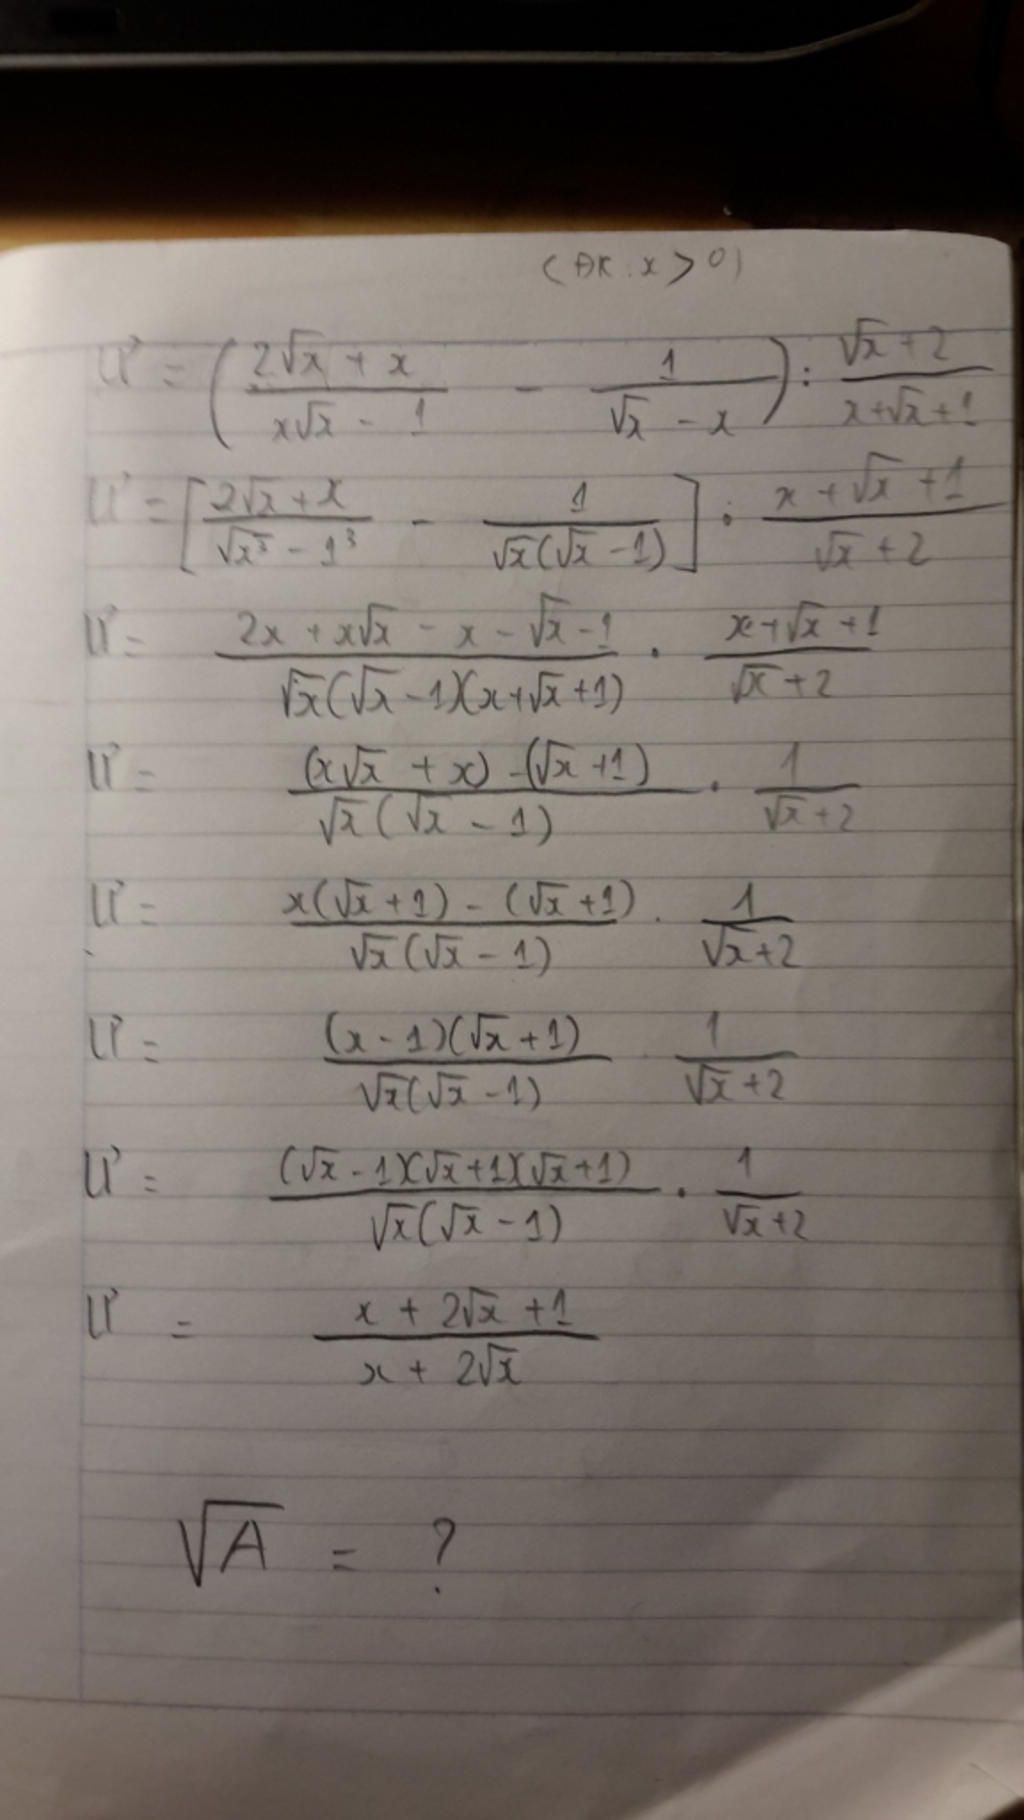 (ĐK: x > 0)
U' = ( (2√x + x)/(x√x - 1) - 1/(√x - x) ) : (√x + 2)/(x + √x + 1)
U' = [ (2√x + x)/(√x³ - 1³) - 1/(√x(√x - 1)) ] . (x + √x + 1)/(√x + 2)
U' = (2x + x√x - x - √x - 1)/(√x(√x - 1)(x + √x + 1)) . (x + √x + 1)/(√x + 2)
U' = ((x√x + x) - (√x + 1))/(√x(√x - 1)) . 1/(√x + 2)
U' = (x(√x + 1) - (√x + 1))/(√x(√x - 1)) . 1/(√x + 2)
U' = ((x - 1)(√x + 1))/(√x(√x - 1)) . 1/(√x + 2)
U' = ((√x - 1)(√x + 1)(√x + 1))/(√x(√x - 1)) . 1/(√x + 2)
U' = (x + 2√x + 1)/(x + 2√x)
√A = ?